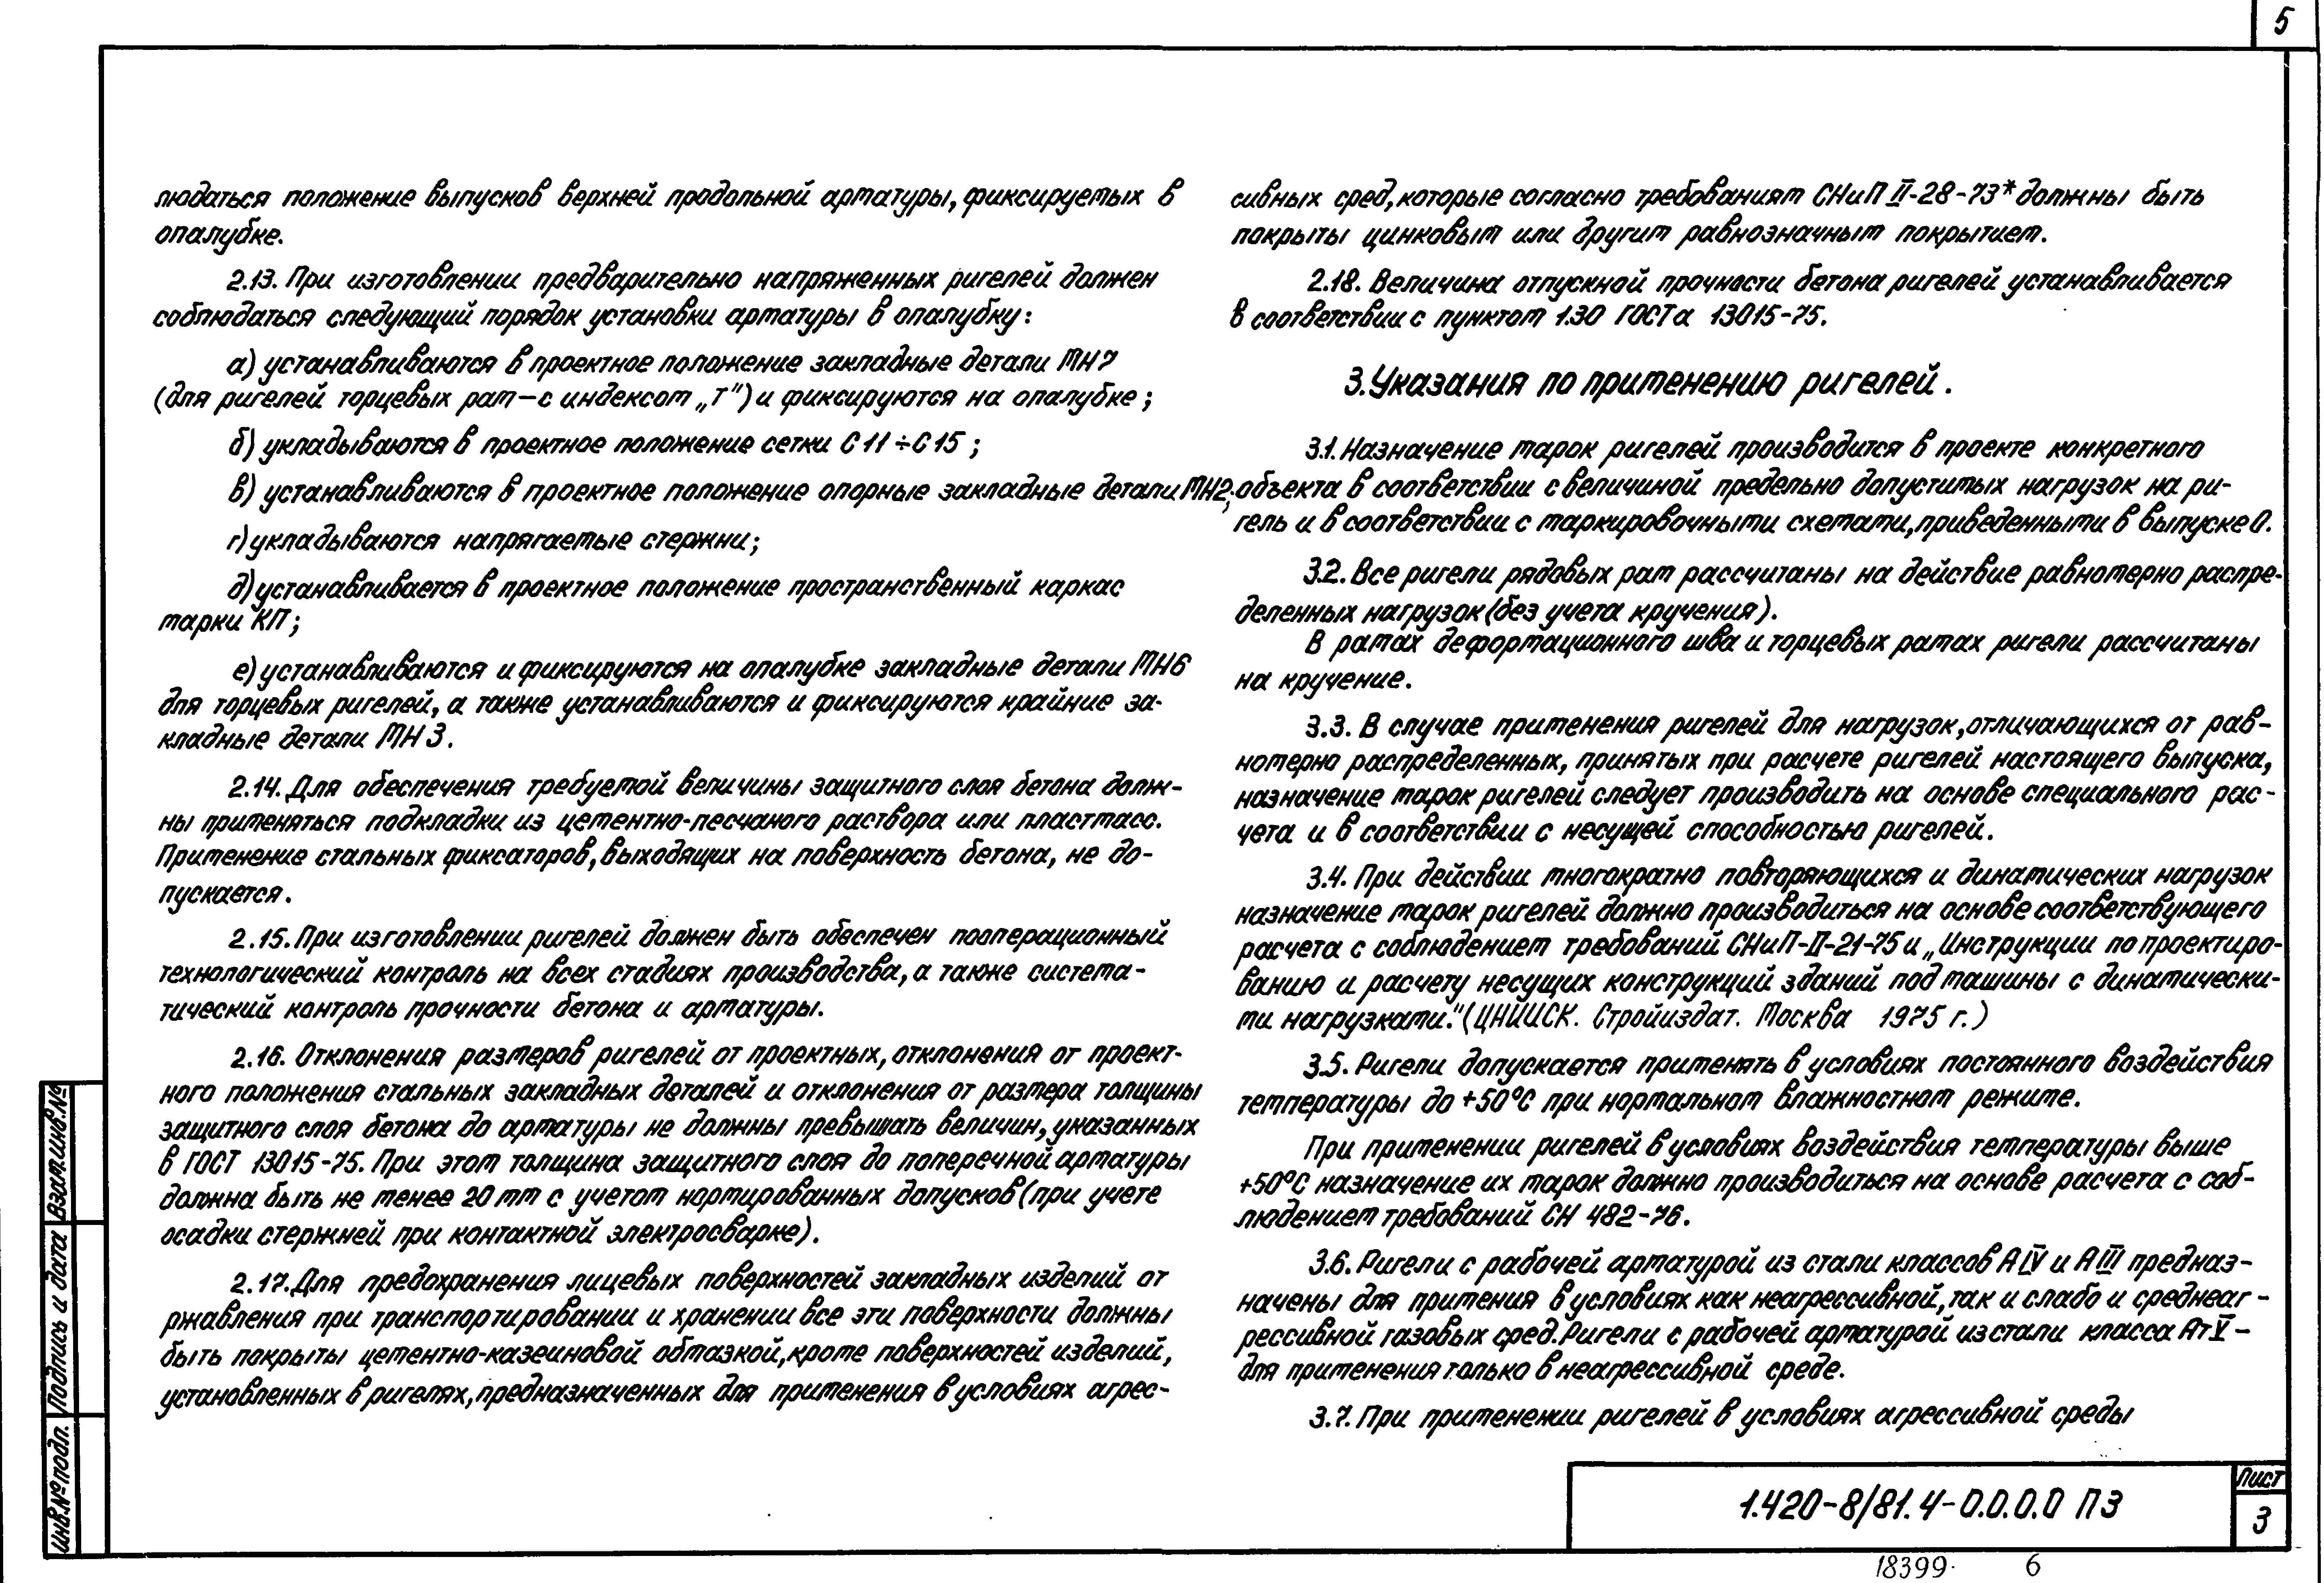 5
людаться положение выпусков верхней продольной арматуры, фиксируемых в
опалубке.
2.13. При изготовлении предварительно напряженных ригелей должен
соблюдаться следующий порядок установки арматуры в опалубку:
а) устанавливаются в проектное положение закладные детали МН7
(для ригелей торцевых рам – с индексом „Т") и фиксируются на опалубке;
б) укладываются в проектное положение сетки С11÷С15;
в) устанавливаются в проектное положение опорные закладные детали МН2;
г) укладываются напрягаемые стержни;
д) устанавливается в проектное положение пространственный каркас
марки КП;
е) устанавливаются и фиксируются на опалубке закладные детали МН6
для торцевых ригелей, а также устанавливаются и фиксируются крайние за-
кладные детали МН3.
2.14. Для обеспечения требуемой величины защитного слоя бетона долж-
ны применяться подкладки из цементно-песчаного раствора или пластмасс.
Применение стальных фиксаторов, выходящих на поверхность бетона, не до-
пускается.
2.15. При изготовлении ригелей должен быть обеспечен пооперационный
технологический контроль на всех стадиях производства, а также система-
тический контроль прочности бетона и арматуры.
2.16. Отклонения размеров ригелей от проектных, отклонения от проект-
ного положения стальных закладных деталей и отклонения от размера толщины
защитного слоя бетона до арматуры не должны превышать величин, указанных
в ГОСТ 13015-75. При этом толщина защитного слоя до поперечной арматуры
должна быть не менее 20 мм с учетом нормированных допусков (при учете
осадки стержней при контактной электросварке).
2.17. Для предохранения лицевых поверхностей закладных изделий от
ржавления при транспортировании и хранении все эти поверхности должны
быть покрыты цементно-казеиновой обмазкой, кроме поверхностей изделий,
установленных в ригелях, предназначенных для применения в условиях агрес-
сивных сред, которые согласно требованиям СНиП II-28-73* должны быть
покрыты цинковым или другим равнозначным покрытием.
2.18. Величина отпускной прочности бетона ригелей устанавливается
в соответствии с пунктом 1.30 ГОСТа 13015-75.
3. Указания по применению ригелей.
3.1. Назначение марок ригелей производится в проекте конкретного
объекта в соответствии с величиной предельно допустимых нагрузок на ри-
гель и в соответствии с маркировочными схемами, приведенными в выпуске 0.
3.2. Все ригели рядовых рам рассчитаны на действие равномерно распре-
деленных нагрузок (без учета кручения).
В рамах деформационного шва и торцевых рамах ригели рассчитаны
на кручение.
3.3. В случае применения ригелей для нагрузок, отличающихся от рав-
номерно распределенных, принятых при расчете ригелей настоящего выпуска,
назначение марок ригелей следует производить на основе специального рас-
чета и в соответствии с несущей способностью ригелей.
3.4. При действии многократно повторяющихся и динамических нагрузок
назначение марок ригелей должно производиться на основе соответствующего
расчета с соблюдением требований СНиП-II-21-75 и „Инструкции по проектиро-
ванию и расчету несущих конструкций зданий под машины с динамически-
ми нагрузками." (ЦНИИСК. Стройиздат. Москва 1975 г.)
3.5. Ригели допускается применять в условиях постоянного воздействия
температуры до +50°С при нормальном влажностном режиме.
При применении ригелей в условиях воздействия температуры выше
+50°С назначение их марок должно производиться на основе расчета с соб-
людением требований СН 482-76.
3.6. Ригели с рабочей арматурой из стали классов АIV и АIII предназ-
начены для примения в условиях как неагрессивной, так и слабо и среднеаг-
рессивной газовых сред. Ригели с рабочей арматурой из стали класса АтV –
для применения только в неагрессивной среде.
3.7. При применении ригелей в условиях агрессивной среды
Взам.инв.№
Подпись и дата
Инв.№подл.
1.420-8/81.4-0.0.0.0 ПЗ
Лист
3
18399 6